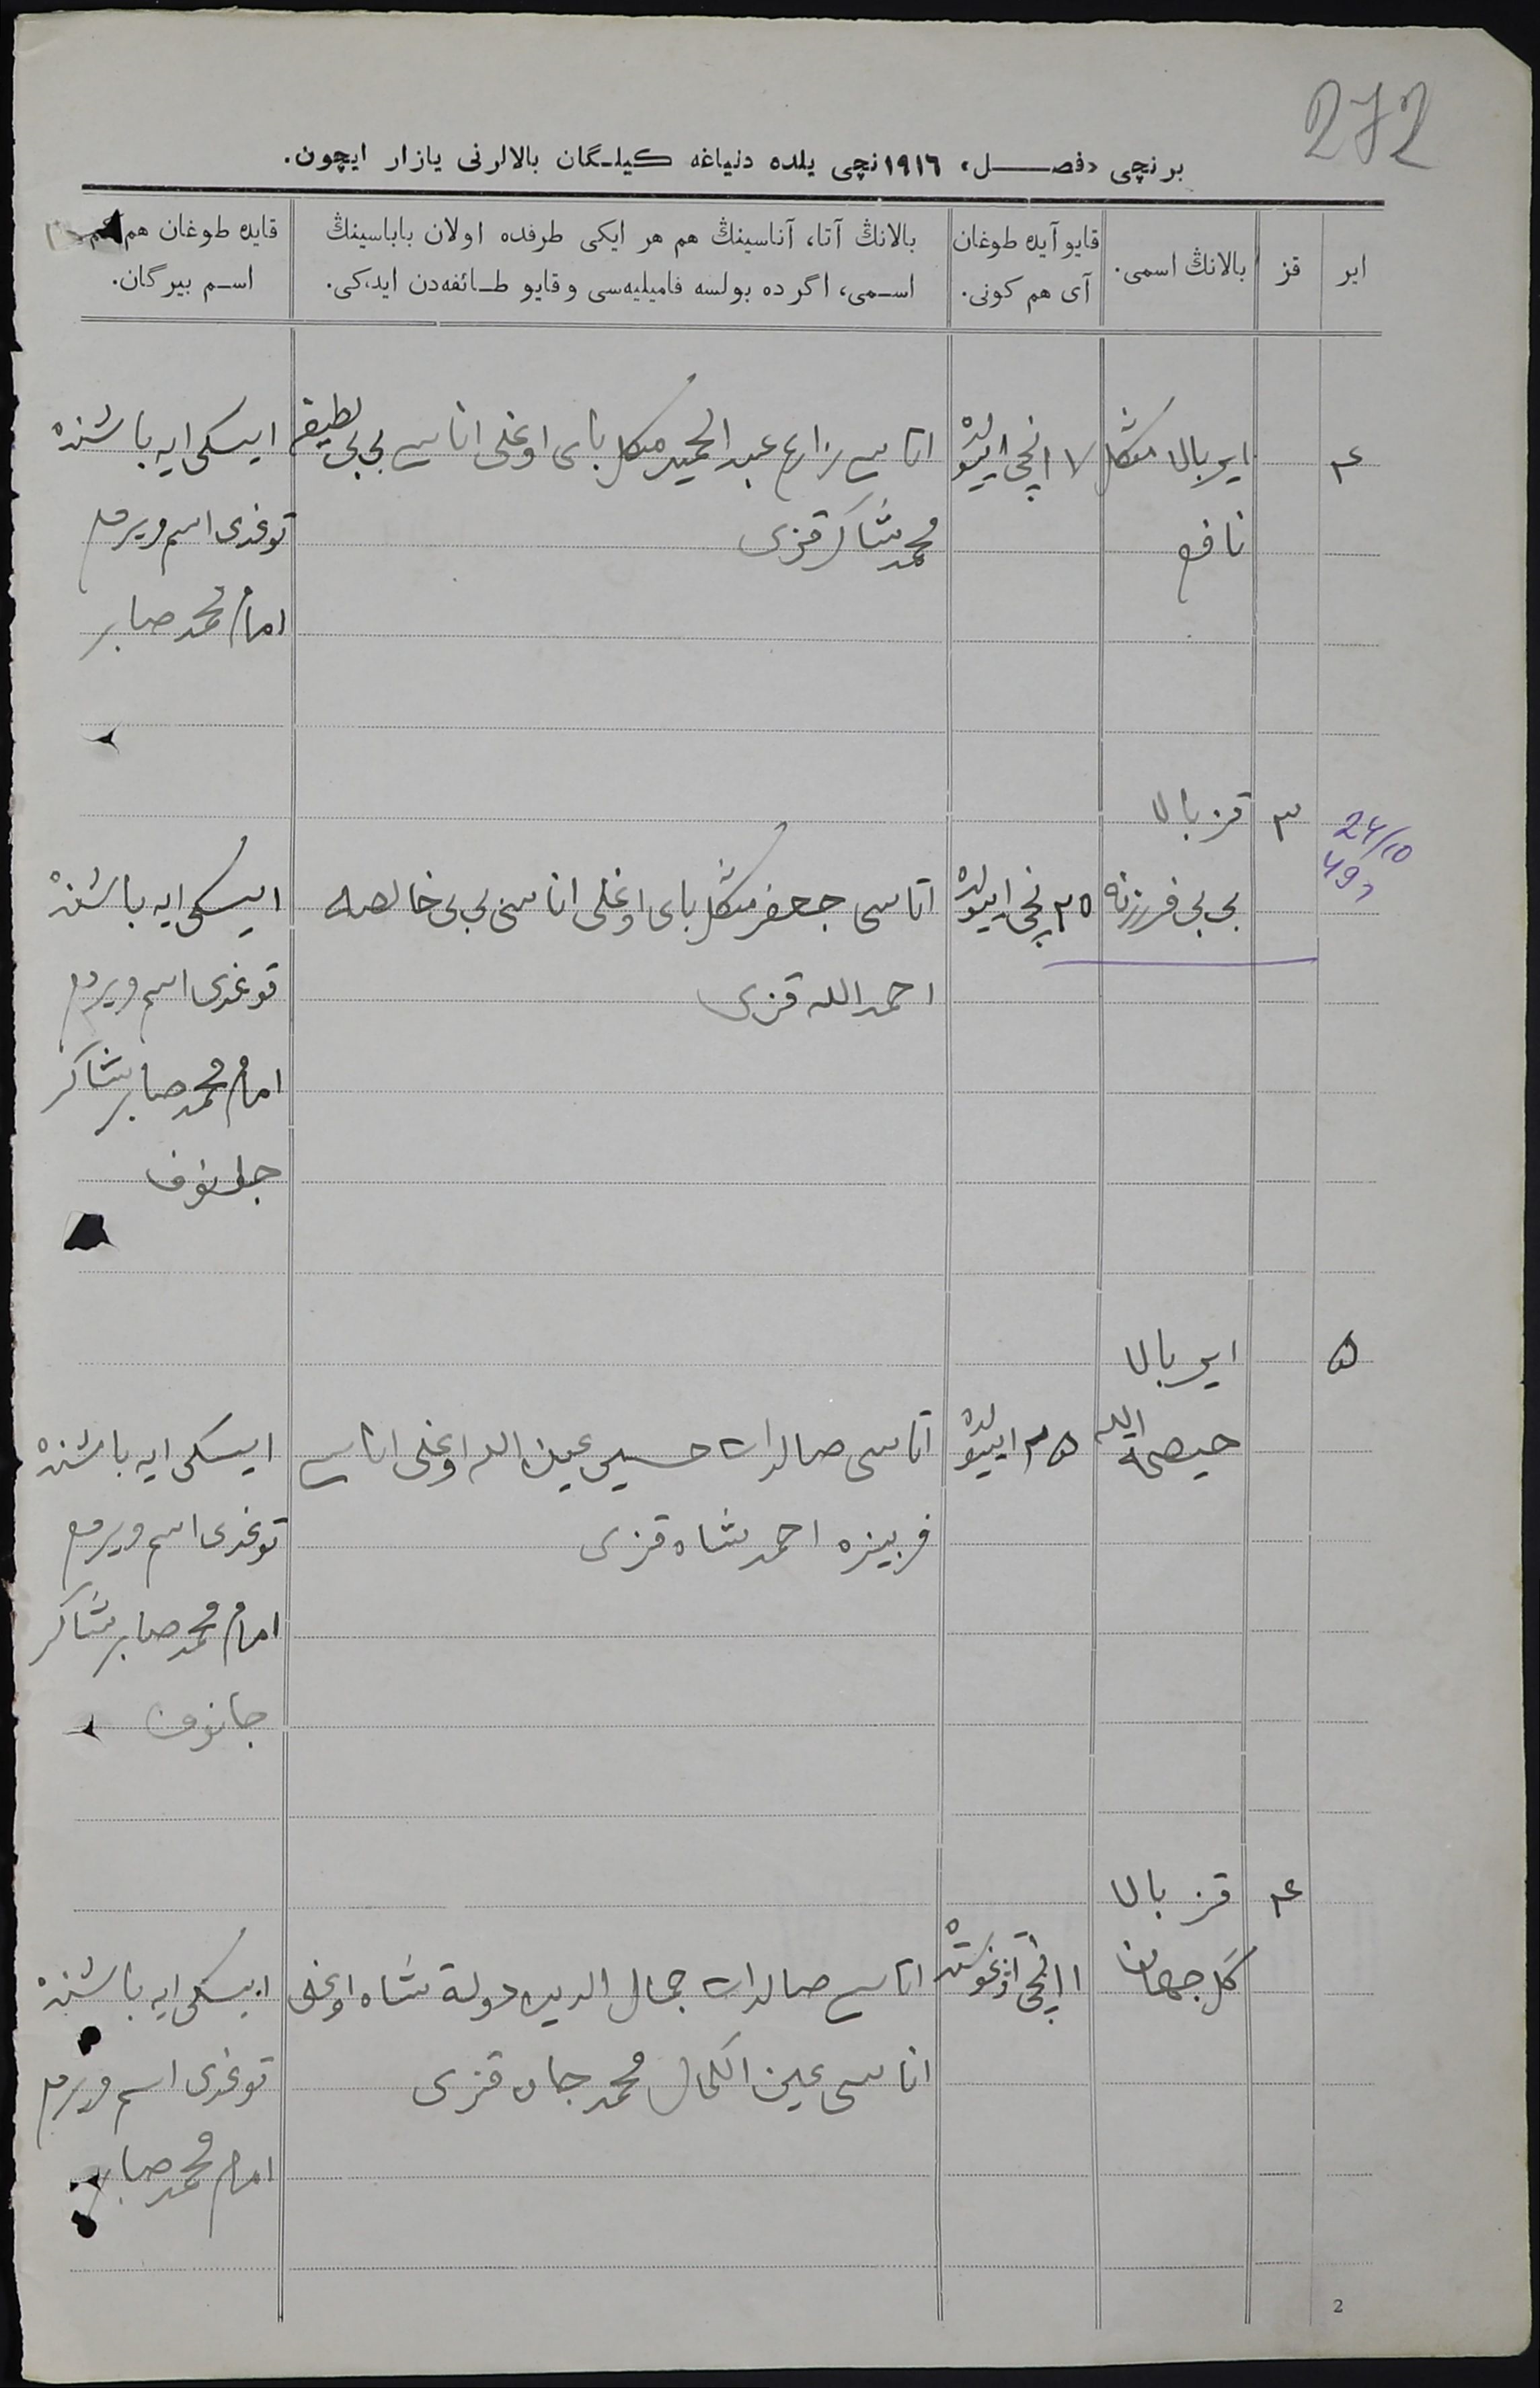 272
برنچی «فصل» ١٩١٦نچی یلده دنیاغه کیلگان بالالرنی یازار ایچون.
ایر
قز
بالانڭ اسمی.
قایو آیده طوغان
آی هم کونی.
بالانڭ آتا، آناسینڭ هم هر ایکی طرفده اولان باباسینڭ
اسمی، اگرده بولسه فامیلیه‌سی و قایو طائفه‌دن ایدکی.
قایده طوغان هم کم
اسم بیرگان.
٤
ایر بالا
نافع
١٧ نچی ایولده
اتاسی زارع عبد الحمید منکل بای اوغلی اناسی بی بی لطیفه
محمد شاکر قزی
ایسکی ایه باشنده
توغدی اسم ویردم
امام محمد صابر
24/10
49
٣
قز بالا
بی بی فرزانه
٢٥ نچی ایولده
اتاسی جعفر منکل بای اوغلی اناسی بی بی خالصه
احمد الله قزی
ایسکی ایه باشنده
توغدی اسم ویردم
امام محمد صابر شاکر
جانوف
٥
ایر بالا
٢٥ ایولده
اتاسی صالدات حسین عین الله اوغلی اناسی
فریزه احمد شاه قزی
ایسکی ایه باشنده
توغدی اسم ویردم
امام محمد صابر شاکر
جانوف
٤
قز بالا
کل جهان
١١ نچی آوغوستده
اتاسی صالدات جمال الدین دولة شاه اوغلی
اناسی عین الکمال محمد جان قزی
ایسکی ایه باشنده
توغدی اسم ویردم
امام محمد صابر
2